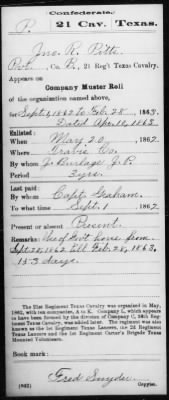 Confederate.
P. 21 Cav. Texas.
Jno. R. Pitts
Pvt., Co. B, 21 Reg't Texas Cavalry.
Appears on
Company Muster Roll
of the organization named above,
for Sept 1, 1862 to Feb 28, 1863.
Dated April 10, 1863
Enlisted:
When May 20, 1862
Where Travis Co.
By whom J. Burlage J. P.
Period 3 yrs.
Last paid:
By whom Capt. Graham.
To what time Sept. 1, 1862
Present or absent Present.
Remarks: Use of Govt horse from
Sept 28, 1862 till Feb. 28, 1863,
153 days.
The 21st Regiment Texas Cavalry was organized in May,
1862, with ten companies, A to K. Company L, which appears
to have been formed by the division of Company C, 24th Regiment
Texas Cavalry, was added later. The regiment was also
known as the 1st Regiment Texas Lancers, the 2d Regiment
Texas Lancers and the 1st Regiment Carter's Brigade Texas
Mounted Volunteers.
Book mark:
Fred Snyder
(642) Copyist.